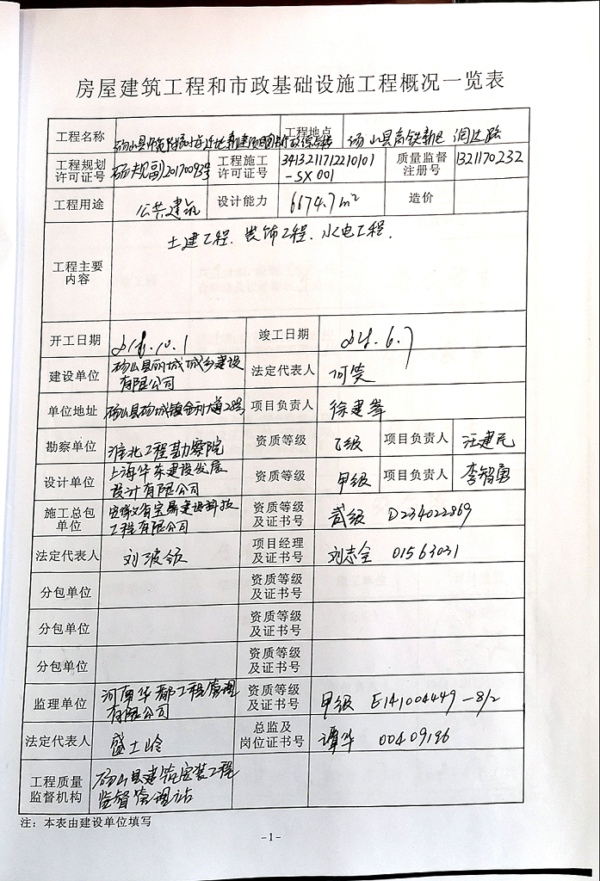 房屋建筑工程和市政基础设施工程概况一览表
工程名称 砀山县 工程地点 砀山县高铁新区
工程规划许可证号 工程施工许可证号 3413211712210101-SX001 质量监督注册号 1321170232
工程用途 公共建筑 设计能力 6674.7m² 造价
工程主要内容 土建工程、装饰工程、水电工程.
开工日期 竣工日期
建设单位 砀山县 城乡建设有限公司 法定代表人
单位地址 砀山县砀城镇 项目负责人 徐建
勘察单位 淮北工程勘察院 资质等级 乙级 项目负责人 汪建
设计单位 上海华东建设发展设计有限公司 资质等级 甲级 项目负责人 李智勇
施工总包单位 安徽省 建设科技工程有限公司 资质等级及证书号 贰级 D234022869
法定代表人 刘 项目经理及证书号 刘志全 01563031
分包单位 资质等级及证书号
分包单位 资质等级及证书号
分包单位 资质等级及证书号
监理单位 河南华都工程管理有限公司 资质等级及证书号 甲级 E141004449-8/2
法定代表人 盛士岭 总监及岗位证书号 谭华 00409196
工程质量监督机构 砀山县建筑安装工程监督管理站
注：本表由建设单位填写
-1-